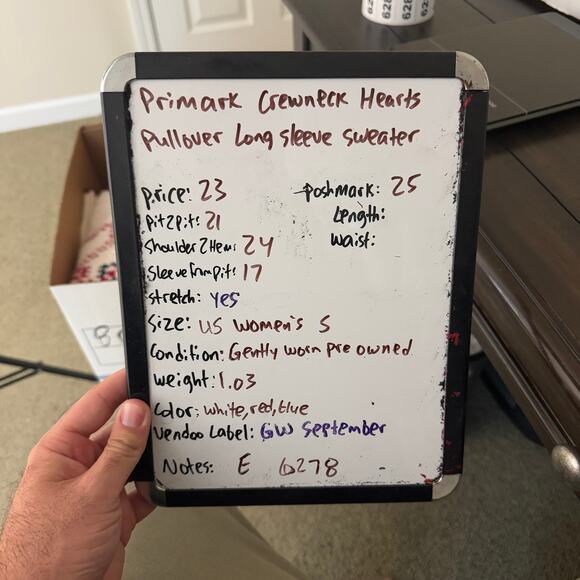 628
628
Primark Crewneck Hearts
Pullover Long sleeve sweater
price: 23
poshmark: 25
pit2pit: 21
Length:
Shoulder2Hem: 24
waist:
Sleeve from pit: 17
stretch: yes
Size: US women's S
Condition: Gently worn pre owned
weight: 1.03
Color: white, red, blue
Vendoo Label: GW September
Notes: E 6278